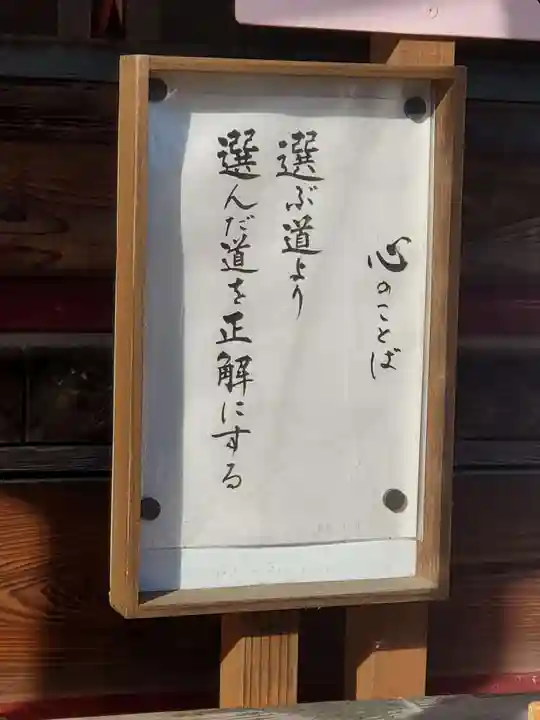 心のことば
選ぶ道より
選んだ道を正解にする